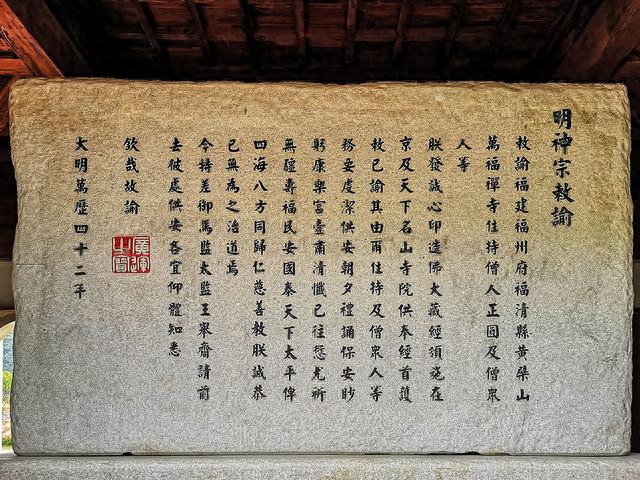 明神宗敕諭
敕諭福建福州府福清縣黃檗山
萬福禪寺住持僧人正圓及僧眾
人等
朕發誠心印造佛大藏經頒施在
京及天下名山寺院供奉經首護
敕已諭其由爾住持及僧眾人等
務要虔潔供安朝夕禮誦保安眇
躬康樂宮壺肅清懺已往愆尤祈
無疆壽福民安國泰天下太平俾
四海八方同歸仁慈善教朕誠恭
已無為之治道焉
今特差御馬監太監王舉齋請前
去彼處供安各宜仰體知悉
欽哉故諭
廣運之寶
大明萬歷四十二年